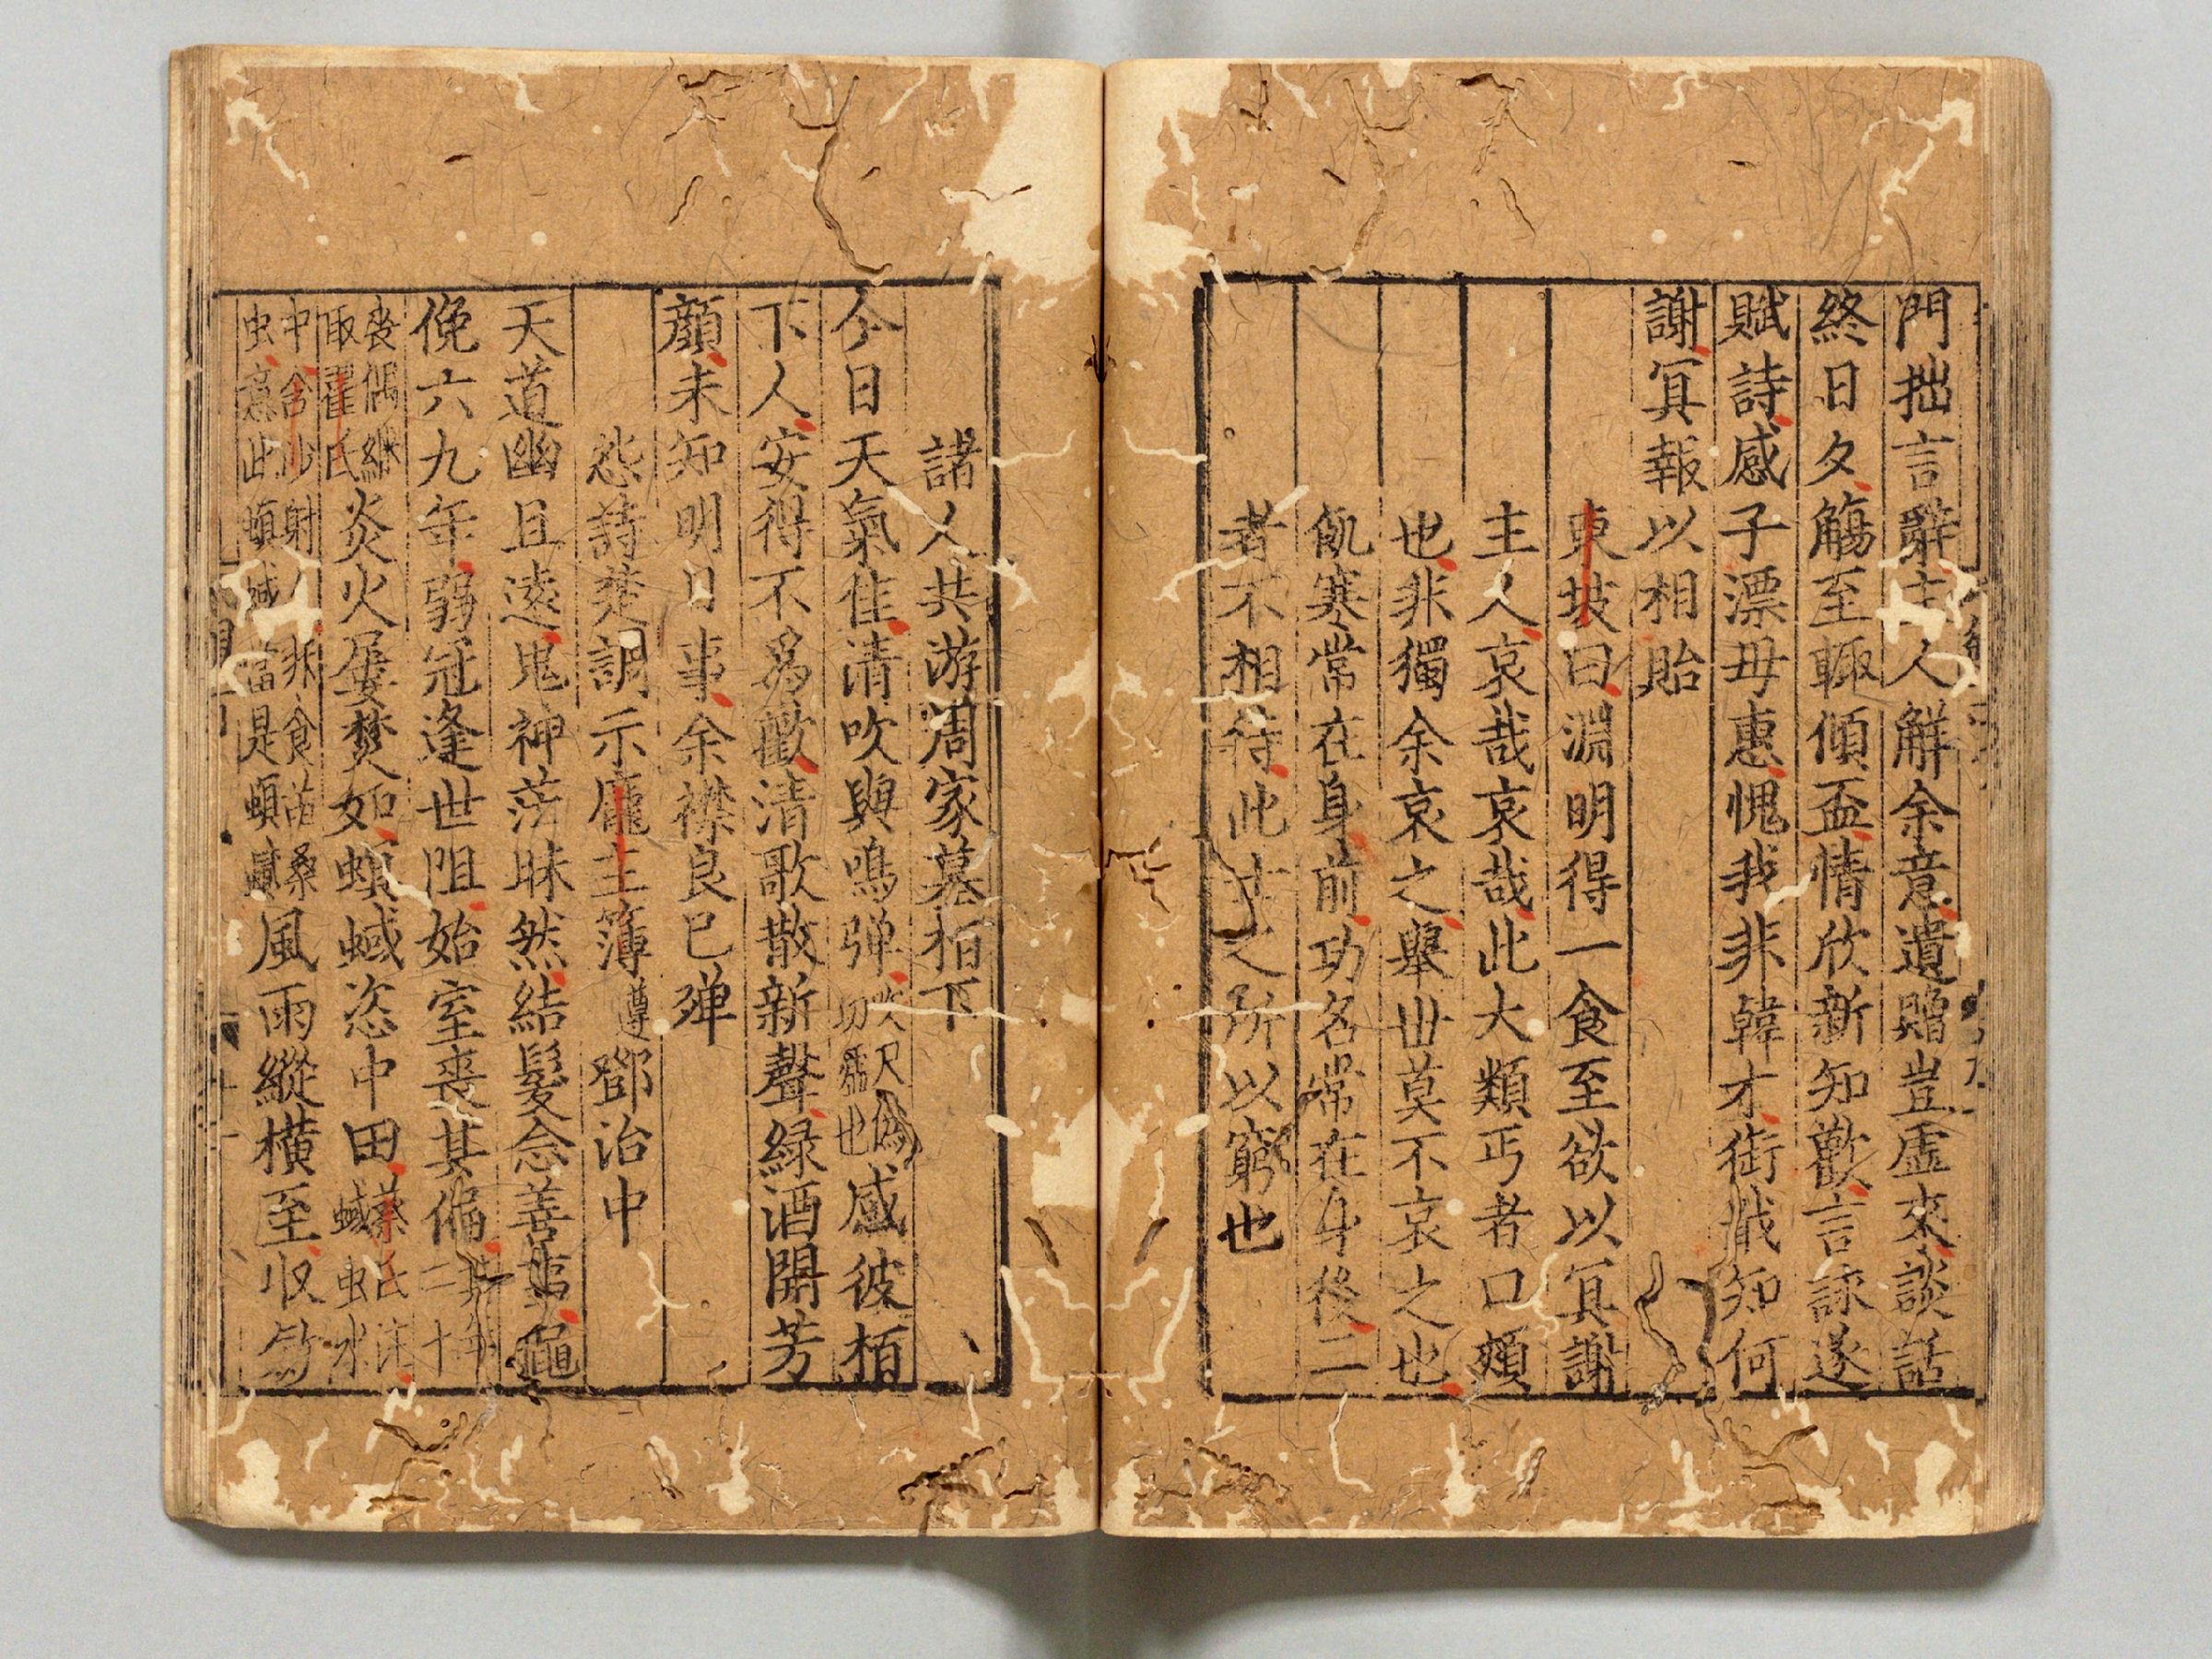 門拙言辭主人解余意遺贈豈虛來談話
終日夕觴至輒傾盃情欣新知歡言詠遂
賦詩感子漂母惠愧我非韓才銜戢知何
謝冥報以相貽
東坡曰淵明得一食至欲以冥謝
主人哀哉哀哉此大類丐者口頰
也非獨余哀之舉世莫不哀之也
飢寒常在身前功名常在身後二
者不相待此士之所以窮也
諸人共游周家墓柏下
今日天氣佳清吹與鳴彈吹尺偽切彈也感彼栢
下人安得不爲歡清歌散新聲緑酒開芳
顔未知明日事余襟良已殫
怨詩楚調示龐主簿遵鄧治中
天道幽且遠鬼神茫昧然結髮念善事僶
俛六九年弱冠逢世阻始室喪其偏二十
喪偶繼取翟氏炎火屢焚如螟蜮恣中田蔡氏注蜮虫水
中含沙射人非食苗桑虫意此螟蜮當是螟䘌風雨縱橫至收斂